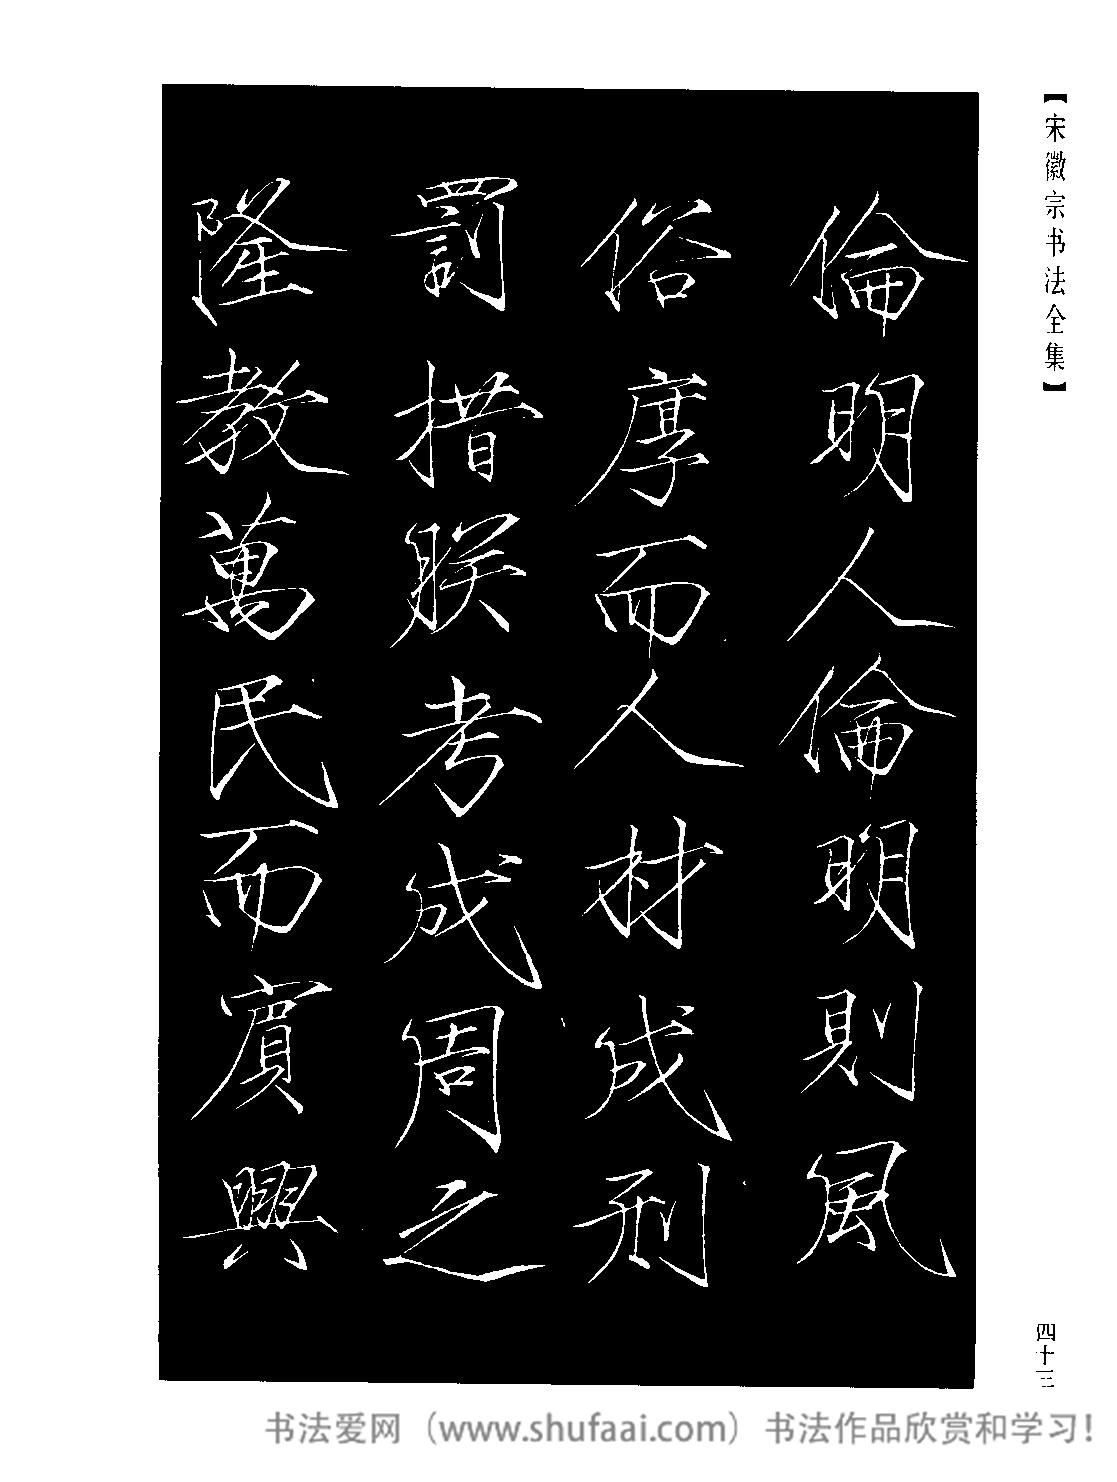 【宋徽宗书法全集】
倫明人倫明則風
俗厚而人材成刑
罰措朕考成周之
隆教萬民而賓興
四十三
书法爱网（www.shufaai.com）书法作品欣赏和学习！